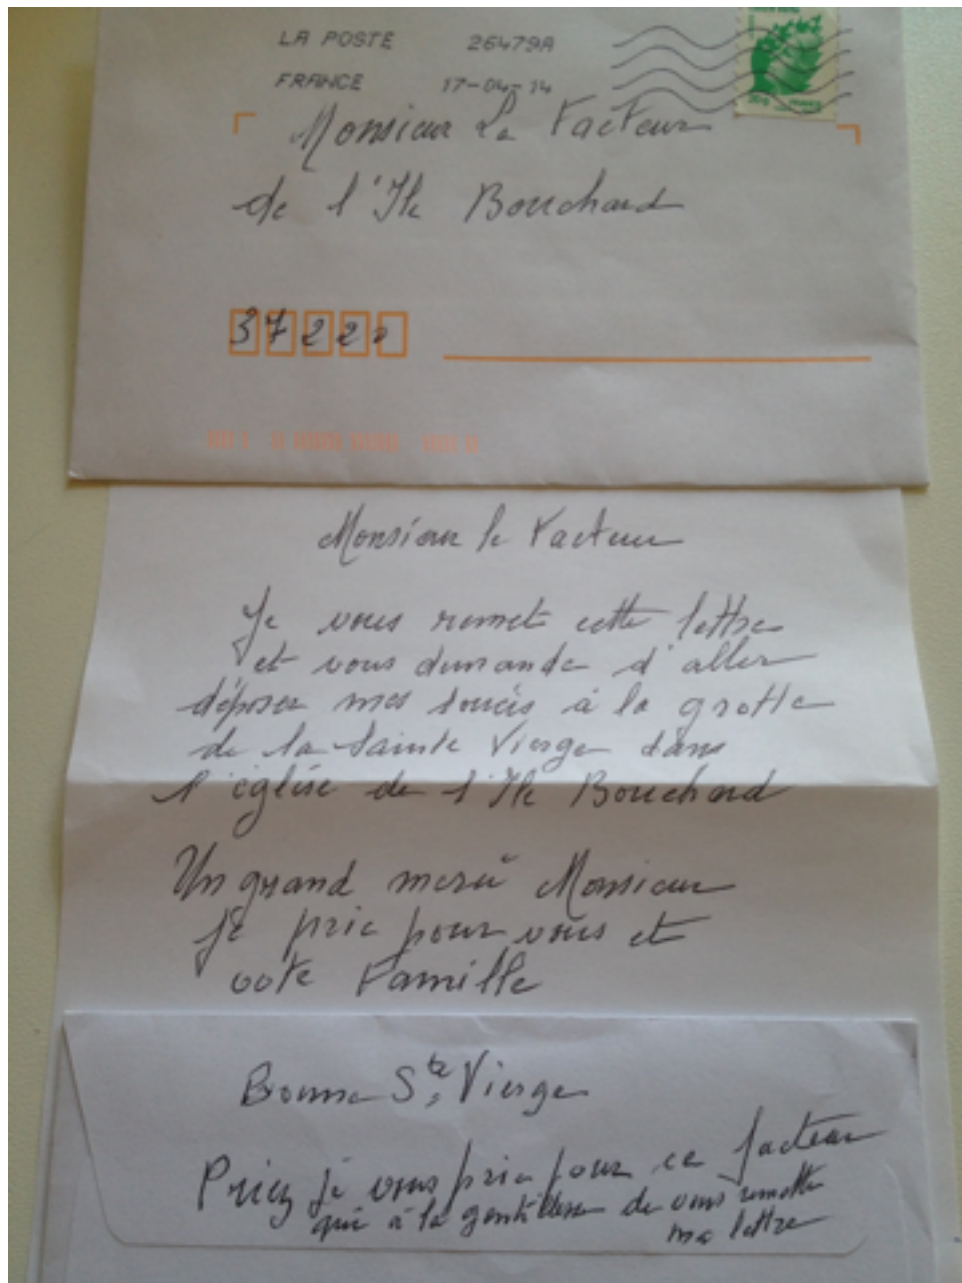 LA POSTE 26479A
FRANCE 17-04-14
FRANCE
Monsieur Le Facteur
de l'Ile Bouchard
37220
Monsieur le Facteur
Je vous remet cette lettre
et vous demande d'aller
déposer mes soucis à la grotte
de la Sainte Vierge dans
l'église de l'Ile Bouchard
Un grand merci Monsieur
je prie pour vous et
vote Famille
Bonne Ste Vierge
Priez je vous prie pour ce facteur
qui à la gentillesse de vous remettre
ma lettre